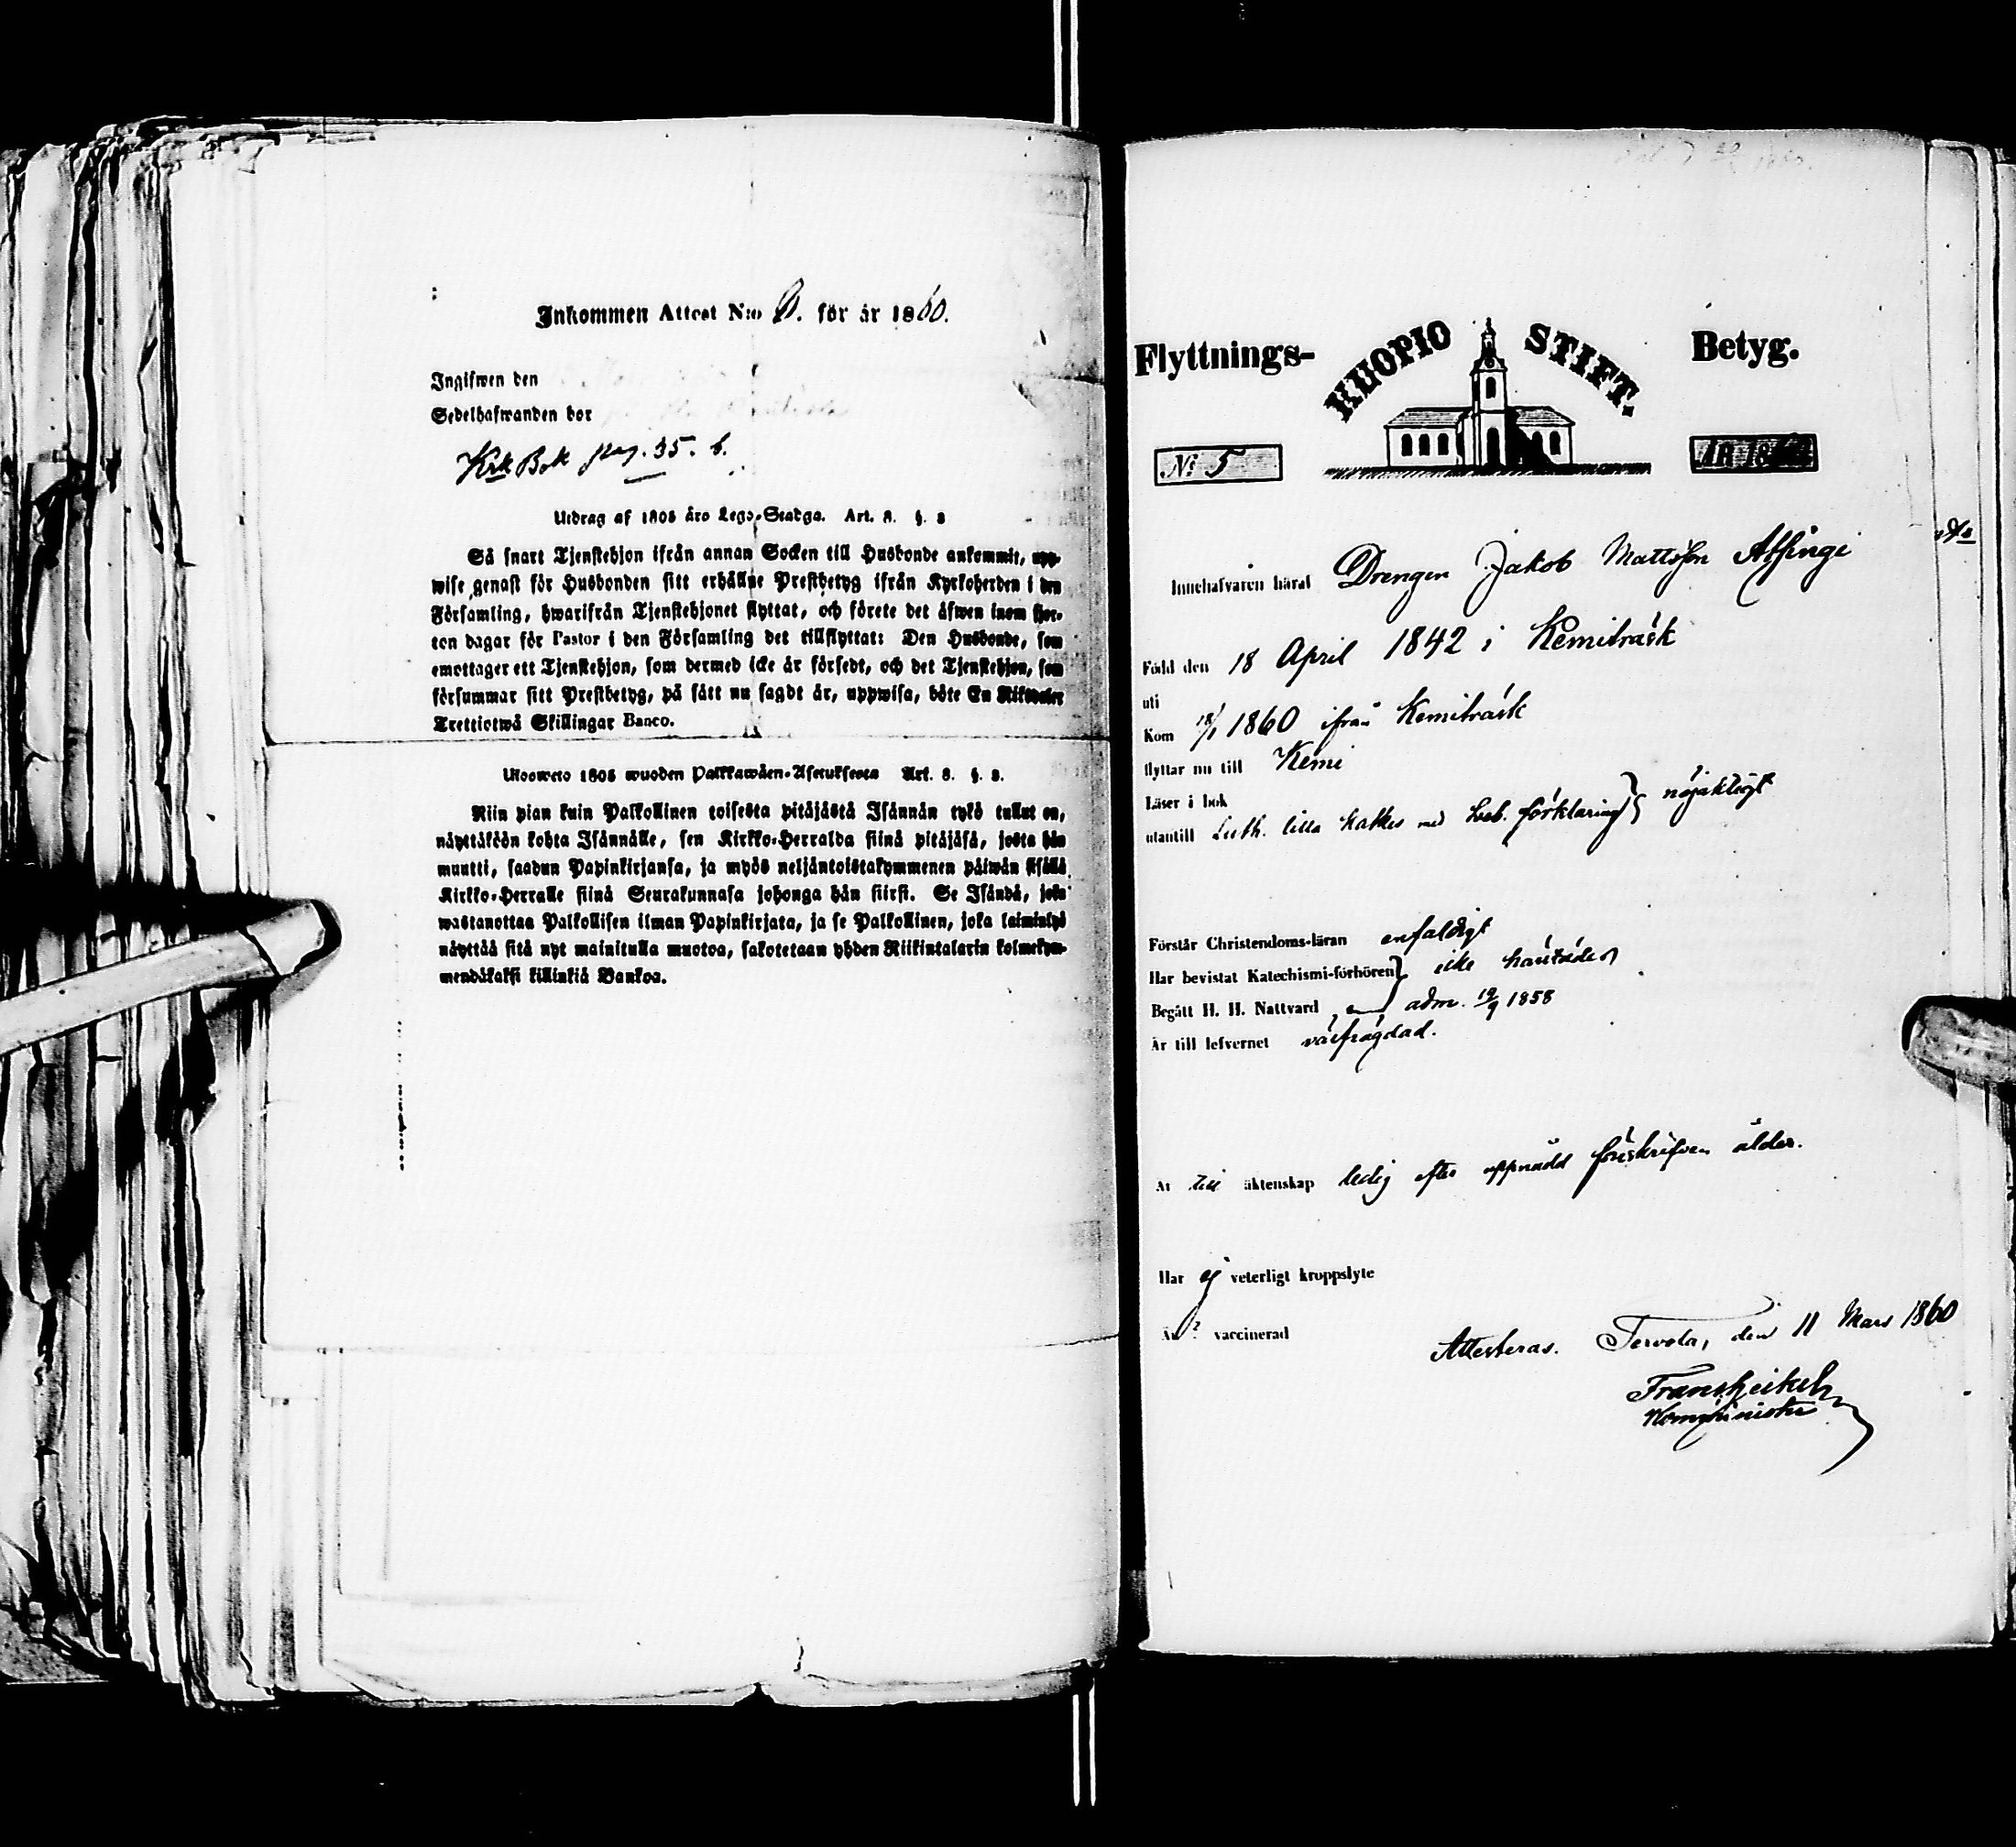 Inkommen Attest N:o för år 1860.
Ingifwen den
Sedelhafwanden bor
Krk Bok pag. 35. b.
Utdrag af 1805 års Lego-Stadga. Art. 8. §. 8
Så snart Tjenstehjon ifrån annan Socken till Husbonde ankommit, upp-
wise genast för Husbonden sitt erhållne Prestbetyg ifrån Kyrkoherden i den
Församling, hwarifrån Tjenstehjonet flyttat, och förete det äfwen inom fjor-
ton dagar för Pastor i den Församling det tillflyttat: Den Husbonde, som
emottager ett Tjenstehjon, som dermed icke är försedt, och det Tjenstehjon, som
försummar sitt Prestbetyg, på sätt nu sagdt är, uppwisa, böte En Riksdaler
Trettiotwå Skillingar Banco.
Uloswето 1805 wuoden Palkkawäen-Asetuksesta Art. 8. §. 8.
Niin pian kuin Palkollinen toisesta pitäjästä Isännän tykö tullut on,
näyttäköön kohta Isännälle, sen Kirkko-Herralda siinä pitäjäsä, josta hän
muutti, saadun Papinkirjansa, ja myös neljäntoistakymmenen päiwän sisällä
Kirkko-Herralle siinä Seurakunnasa johonga hän siirsi. Se Isändä, joka
wastanottaa Palkollisen ilman Papinkirjata, ja se Palkollinen, joka laiminlyö
näyttää sitä nyt mainitulla muotoa, sakotetaan yhden Riikintalarin kolmekym-
mendäkaksi killinkiä Bankoa.
Flyttnings- KUOPIO STIFT. Betyg.
N:o 5 ÅR 1860
Innehafvaren häraf Drengen Jakob Mattsson Alsinge
Född den 18 April 1842 i Kemiträsk
uti
Kom 18/1 1860 ifrån Kemiträsk
flyttar nu till Kemi
Läser i bok
utantill Luth. lilla Katkes med Sveb. förklaring } nöjaktigt
Förstår Christendoms-läran enfaldigt
Har bevistat Katechismi-förhören } icke härstädes
Begått H. H. Nattvard adm. 19/9 1858
Är till lefvernet välfrägdad.
Är till äktenskap ledig efter uppnådd föreskrifven ålder.
Har ej veterligt kroppslyte
Är ? vaccinerad
Attesteras. Tervola, den 11 Mars 1860
Frans Heikel
Komminister